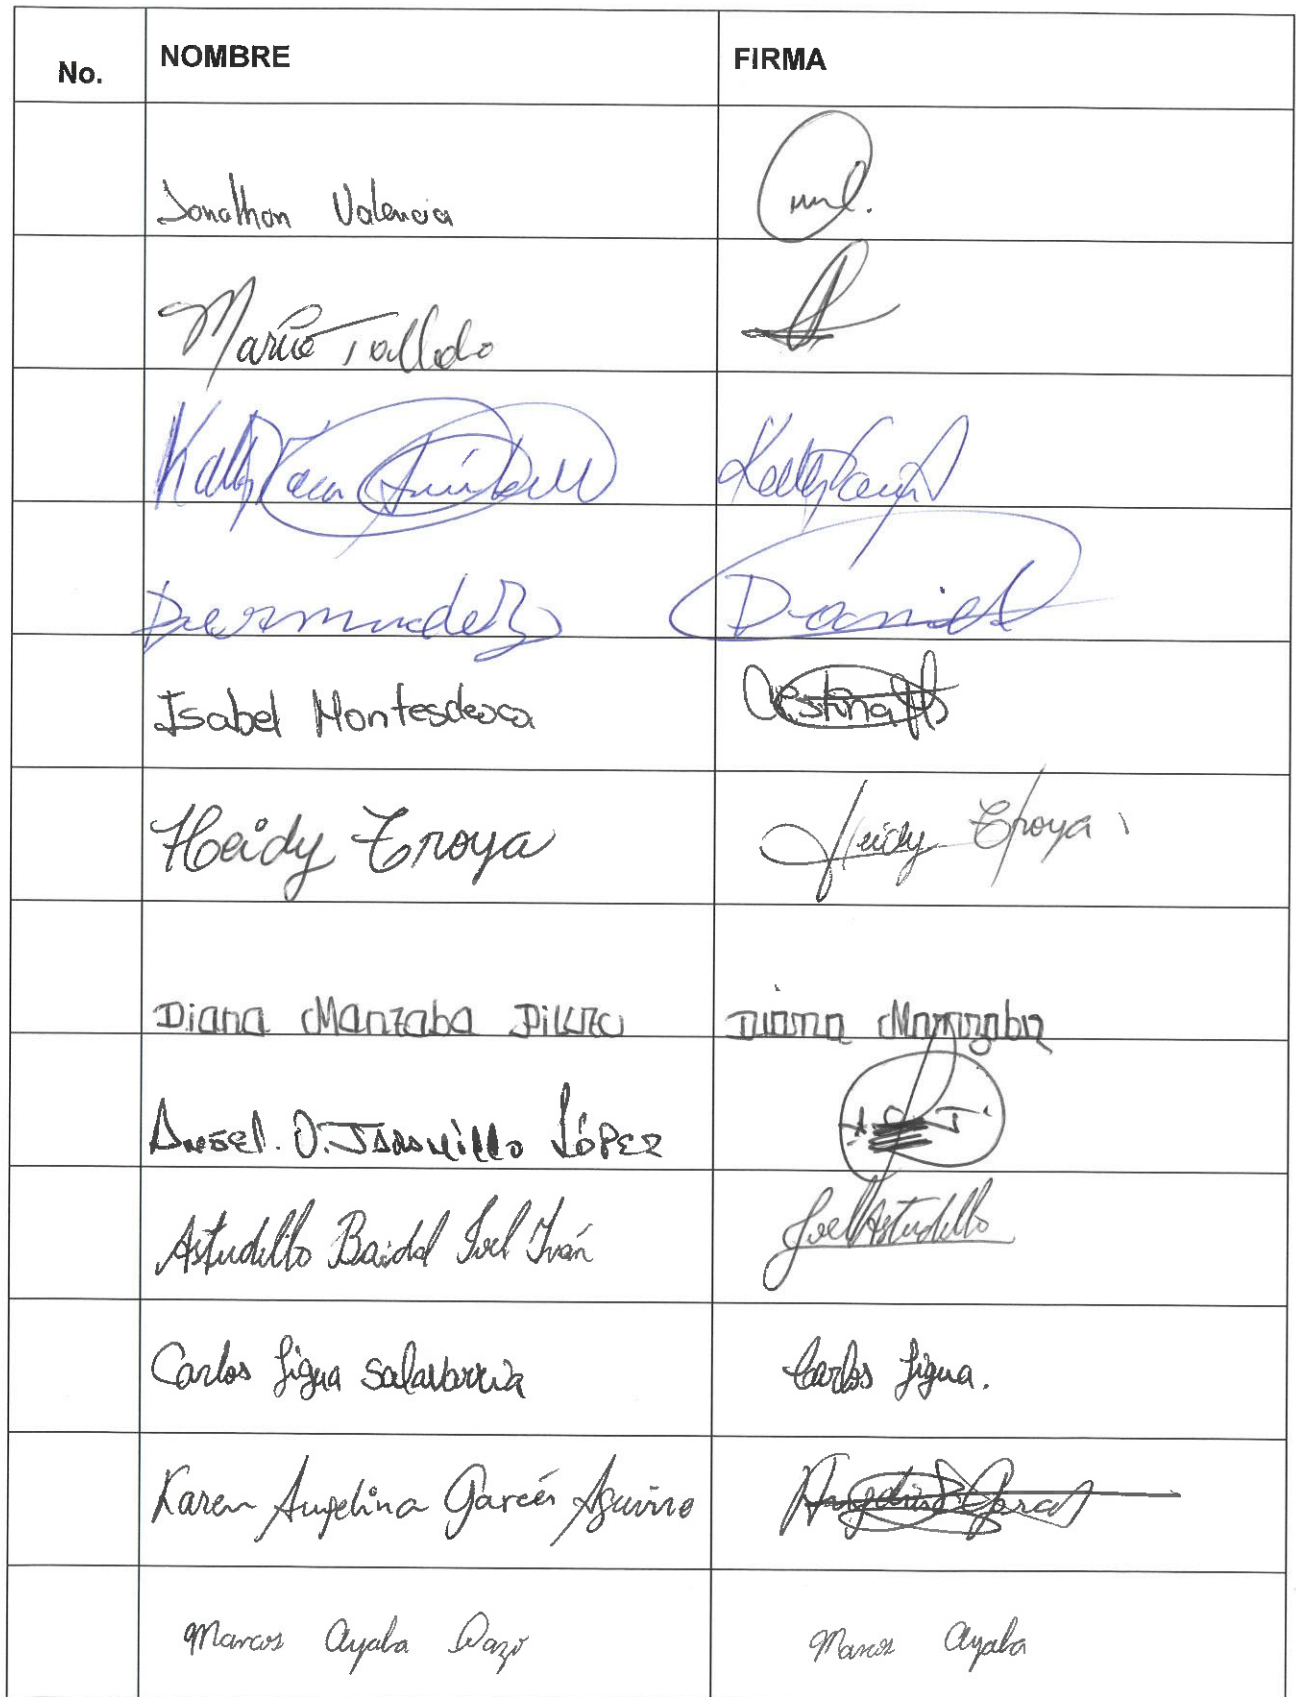 No. NOMBRE FIRMA
Jonathan Valencia
Mario Talledo
Kelly
Bermudez Daniel
Isabel Montesdeoca Cristina
Heidy Troya Heidy Troya
Diana Manzaba Pilozo Diana Manzaba
Angel. O. Jaramillo López
Astudillo Baidal Joel Iván Joel Astudillo
Carlos Ligua Salavarria Carlos Ligua.
Karen Angelina Garcés Aguirre Angelina Garcés
Marcos Ayala Dazo Marcos Ayala